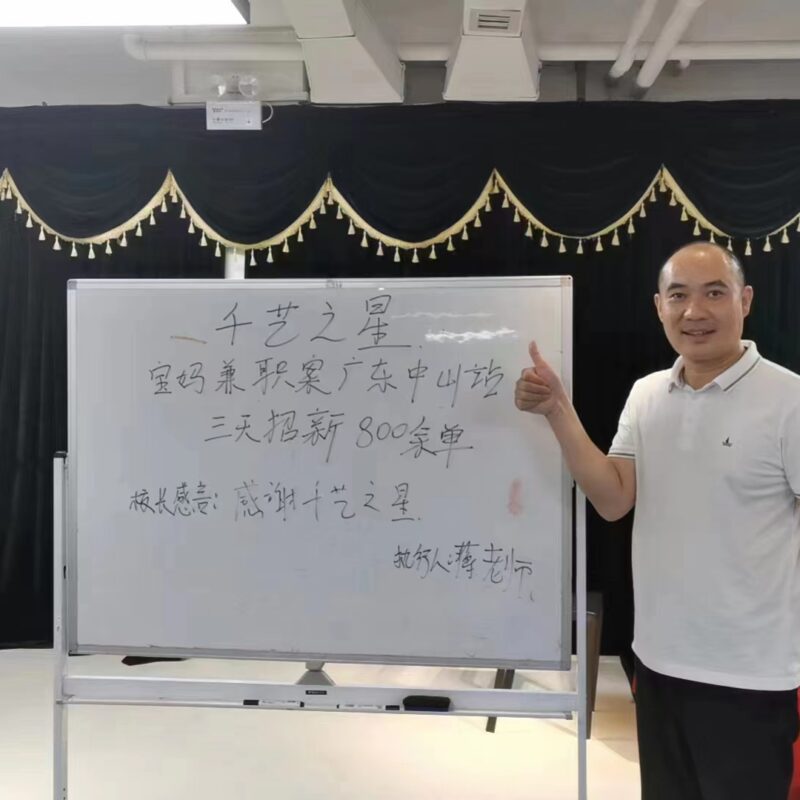 千艺之星
宝妈兼职案广东中山站
三天招新800余单
校长感言：感谢千艺之星
执行人：蒋老师